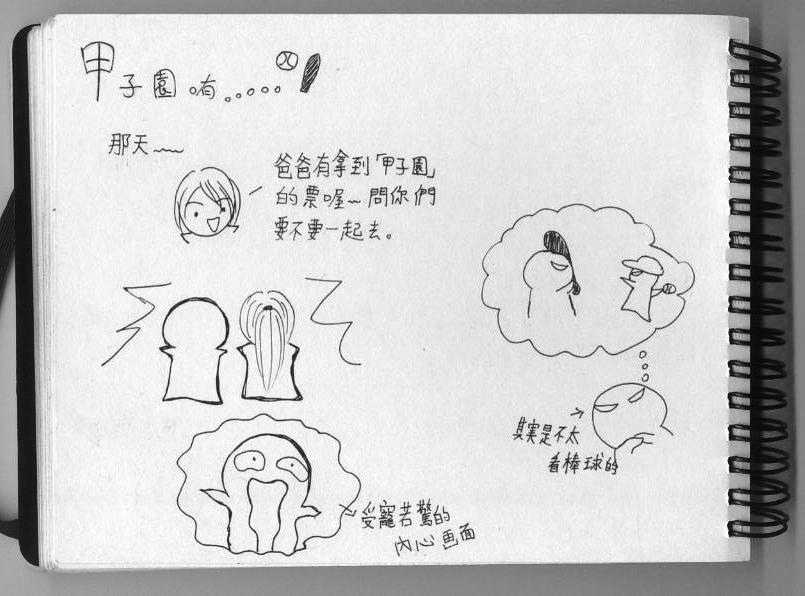 甲子園唷.....
那天~~
爸爸有拿到「甲子園」
的票喔~問你們
要不要一起去。
其實是不太
看棒球的
受寵若驚的
內心画面